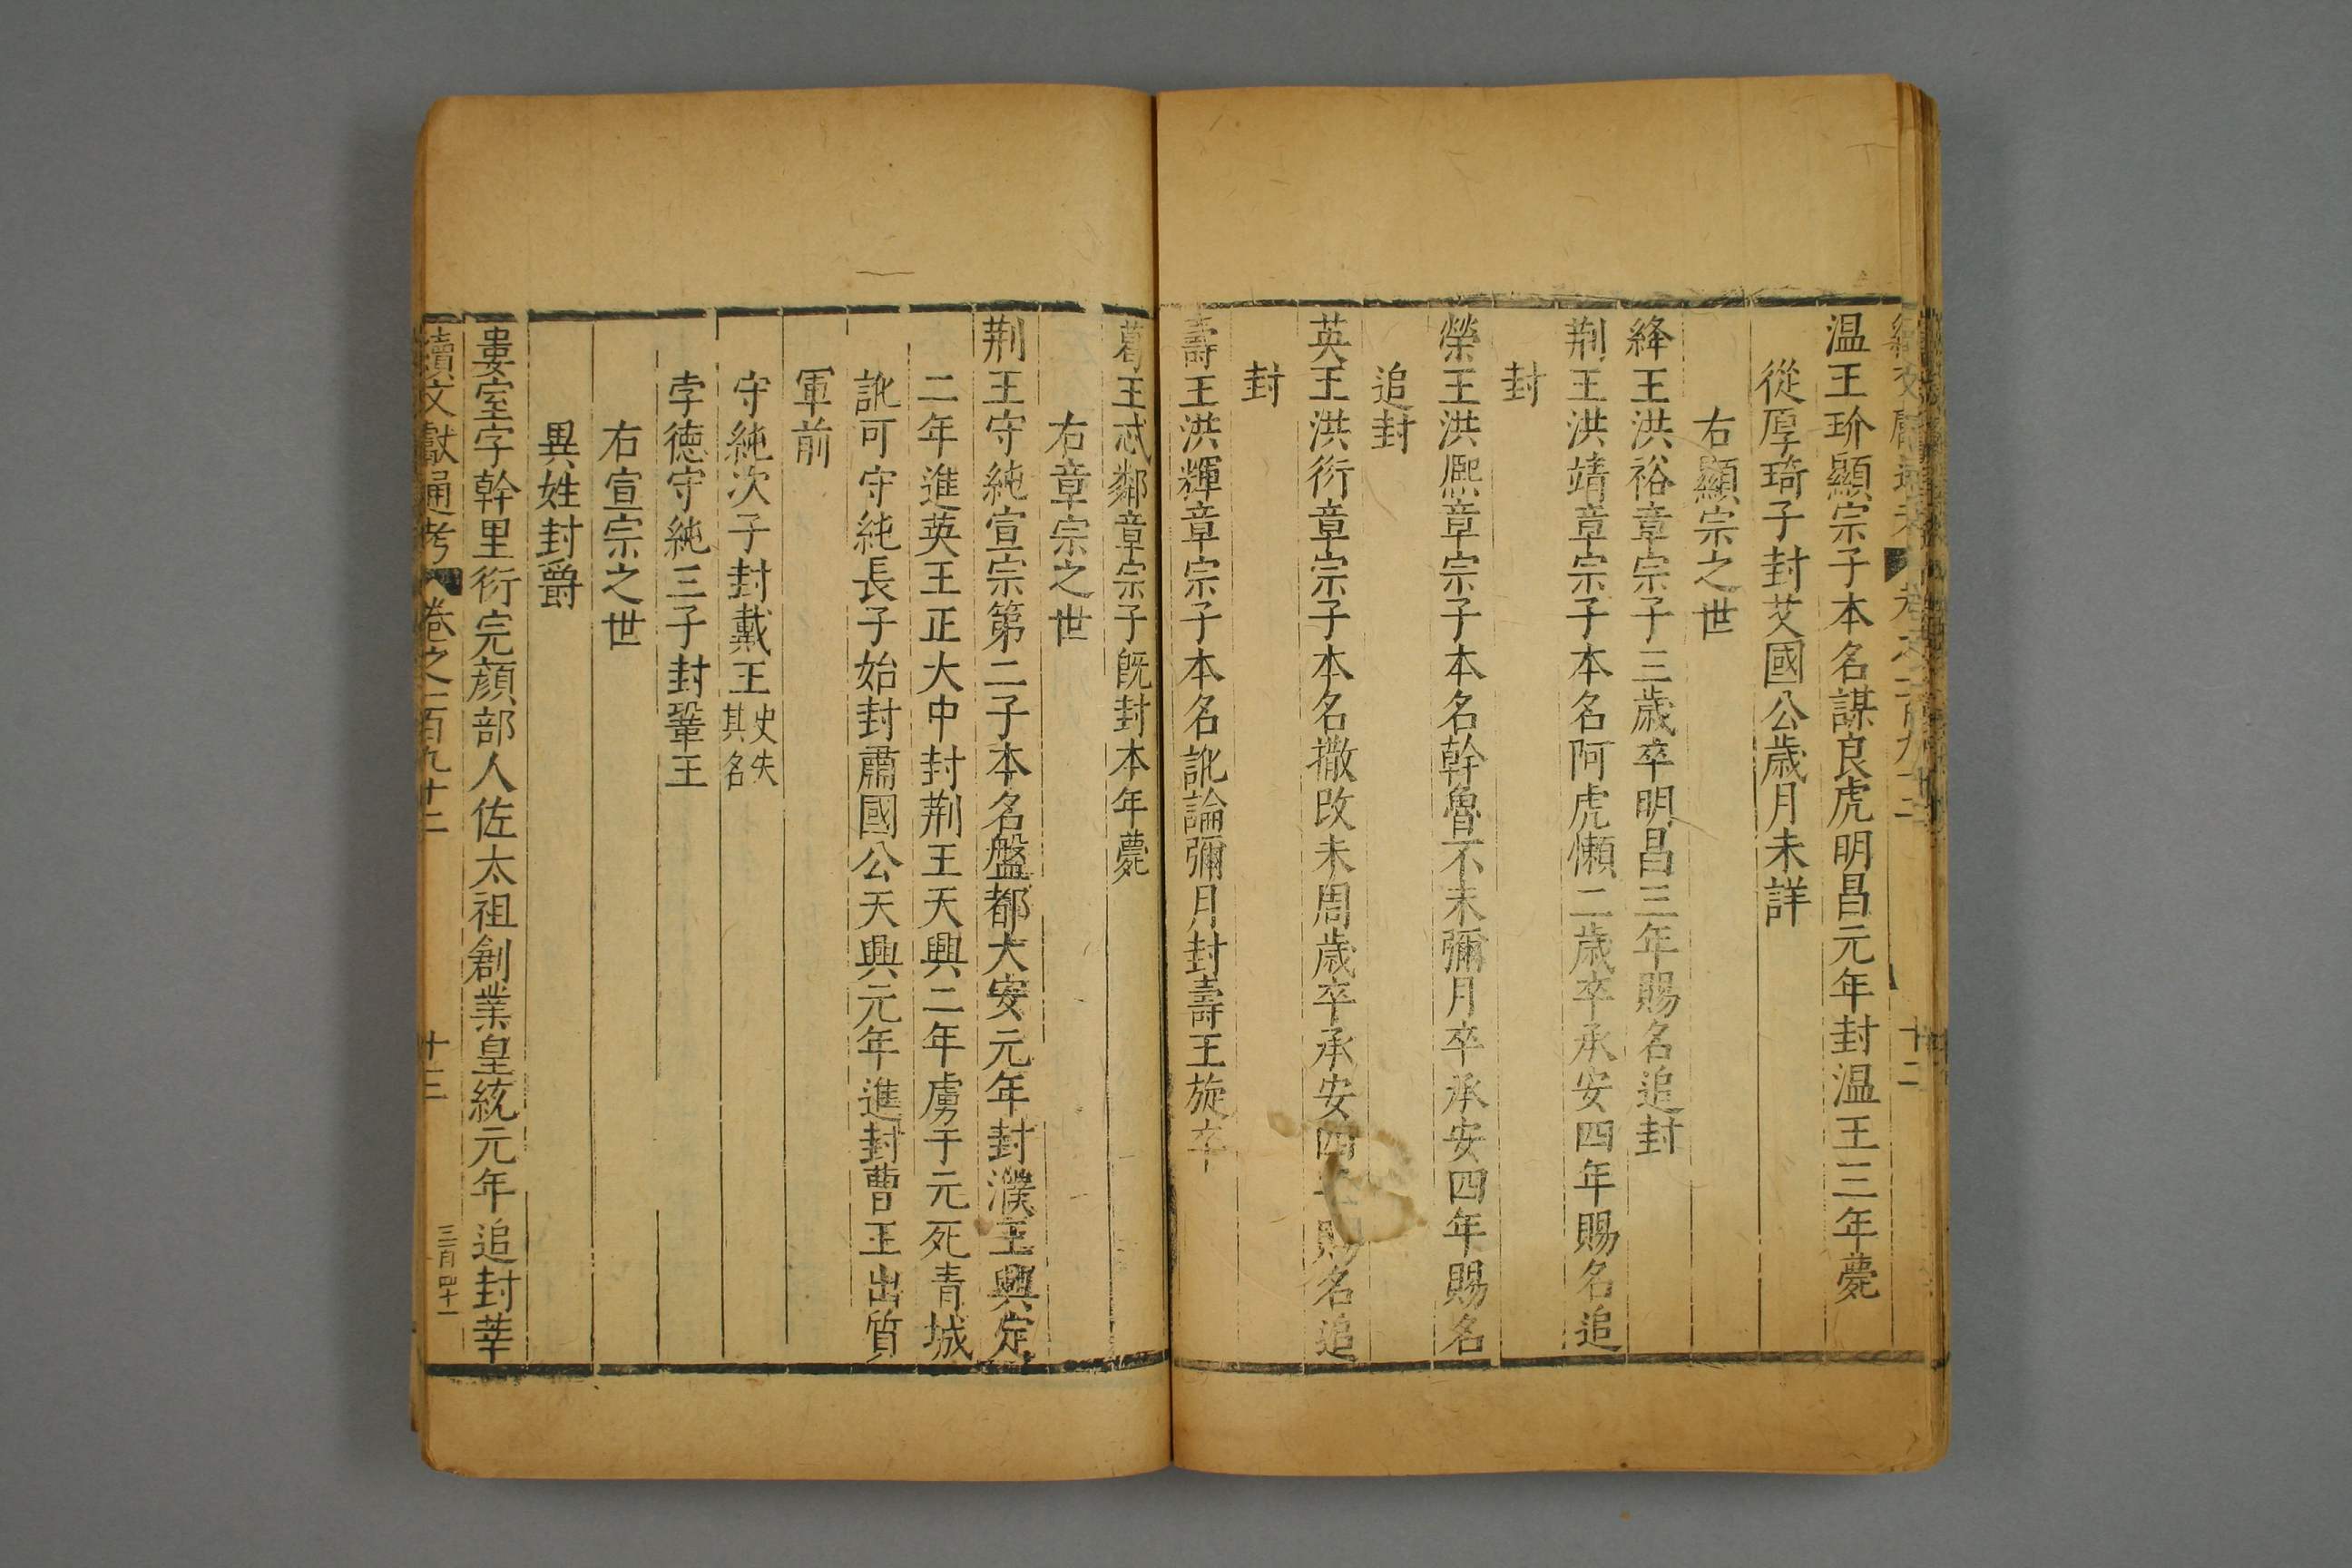 温王玠顯宗子本名謀良虎明昌元年封温王三年薨
從厚琦子封艾國公歳月未詳
右顯宗之世
絳王洪裕章宗子三歳卒明昌三年賜名追封
荆王洪靖章宗子本名阿虎懶二歳卒承安四年賜名追
封
榮王洪熈章宗子本名斡魯不未彌月卒承安四年賜名
追封
英王洪衍章宗子本名撒改未周歳卒承安四年賜名追
封
壽王洪輝章宗子本名訛論彌月封壽王旋卒
葛王忒鄰章宗子旣封本年薨
右章宗之世
荆王守純宣宗第二子本名盤都大安元年封濮王興定
二年進英王正大中封荆王天興二年虜于元死青城
訛可守純長子始封肅國公天興元年進封曹王出質
軍前
守純次子封戴王史失其名
孛德守純三子封鞏王
右宣宗之世
異姓封爵
婁室字幹里衍完顔部人佐太祖創業皇統元年追封莘
續文獻通考 卷之一百九十二 十三 三百四十一